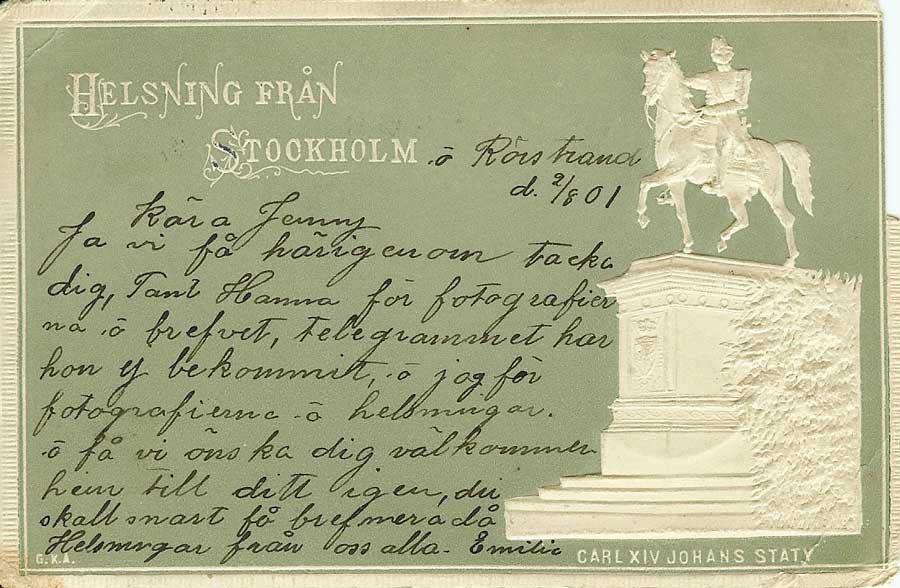 HELSNING FRÅN
STOCKHOLM
ö Rörstrand
d. 2/8 01
Kära Jenny
Ja vi få härigenom tacka
dig, Tant Hanna för fotografier
na ö brefvet, telegrammet har
hon ej bekommit, ö jag för
fotografierna ö helsningar.
ö få vi önska dig välkommen
hem till ditt igen, du
skall snart få bref mera då
Helsningar från oss alla. Emilie
G.K.A.
CARL XIV JOHANS STATY